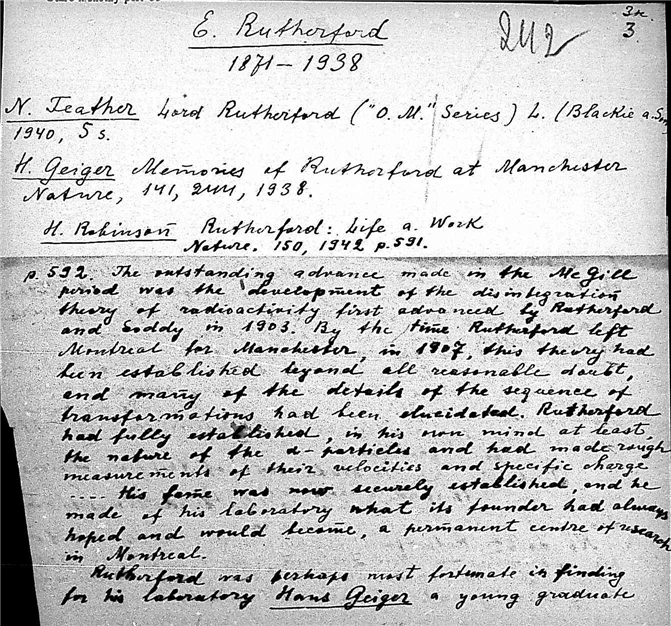 E. Rutherford
242
3к.
3
1871 – 1938
N. Feather Lord Rutherford ("O. M." Series) L. (Blackie a. Son
1940, 5 s.
H. Geiger Memories of Rutherford at Manchester
Nature, 141, 244, 1938.
H. Robinson Rutherford: Life a. Work
Nature. 150, 1942 p. 591.
p. 592. The outstanding advance made in the McGill
period was the development of the disintegration
theory of radioactivity first advanced by Rutherford
and Soddy in 1903. By the time Rutherford left
Montreal for Manchester, in 1907, this theory had
been established beyond all reasonable doubt,
and many of the details of the sequence of
transformations had been elucidated. Rutherford
had fully established, in his own mind at least,
the nature of the α-particles and had made rough
measurements of their velocities and specific charge
.... His fame was now securely established, and he
made of his laboratory what its founder had always
hoped and would become, a permanent centre of research
in Montreal.
Rutherford was perhaps most fortunate in finding
for his laboratory Hans Geiger a young graduate